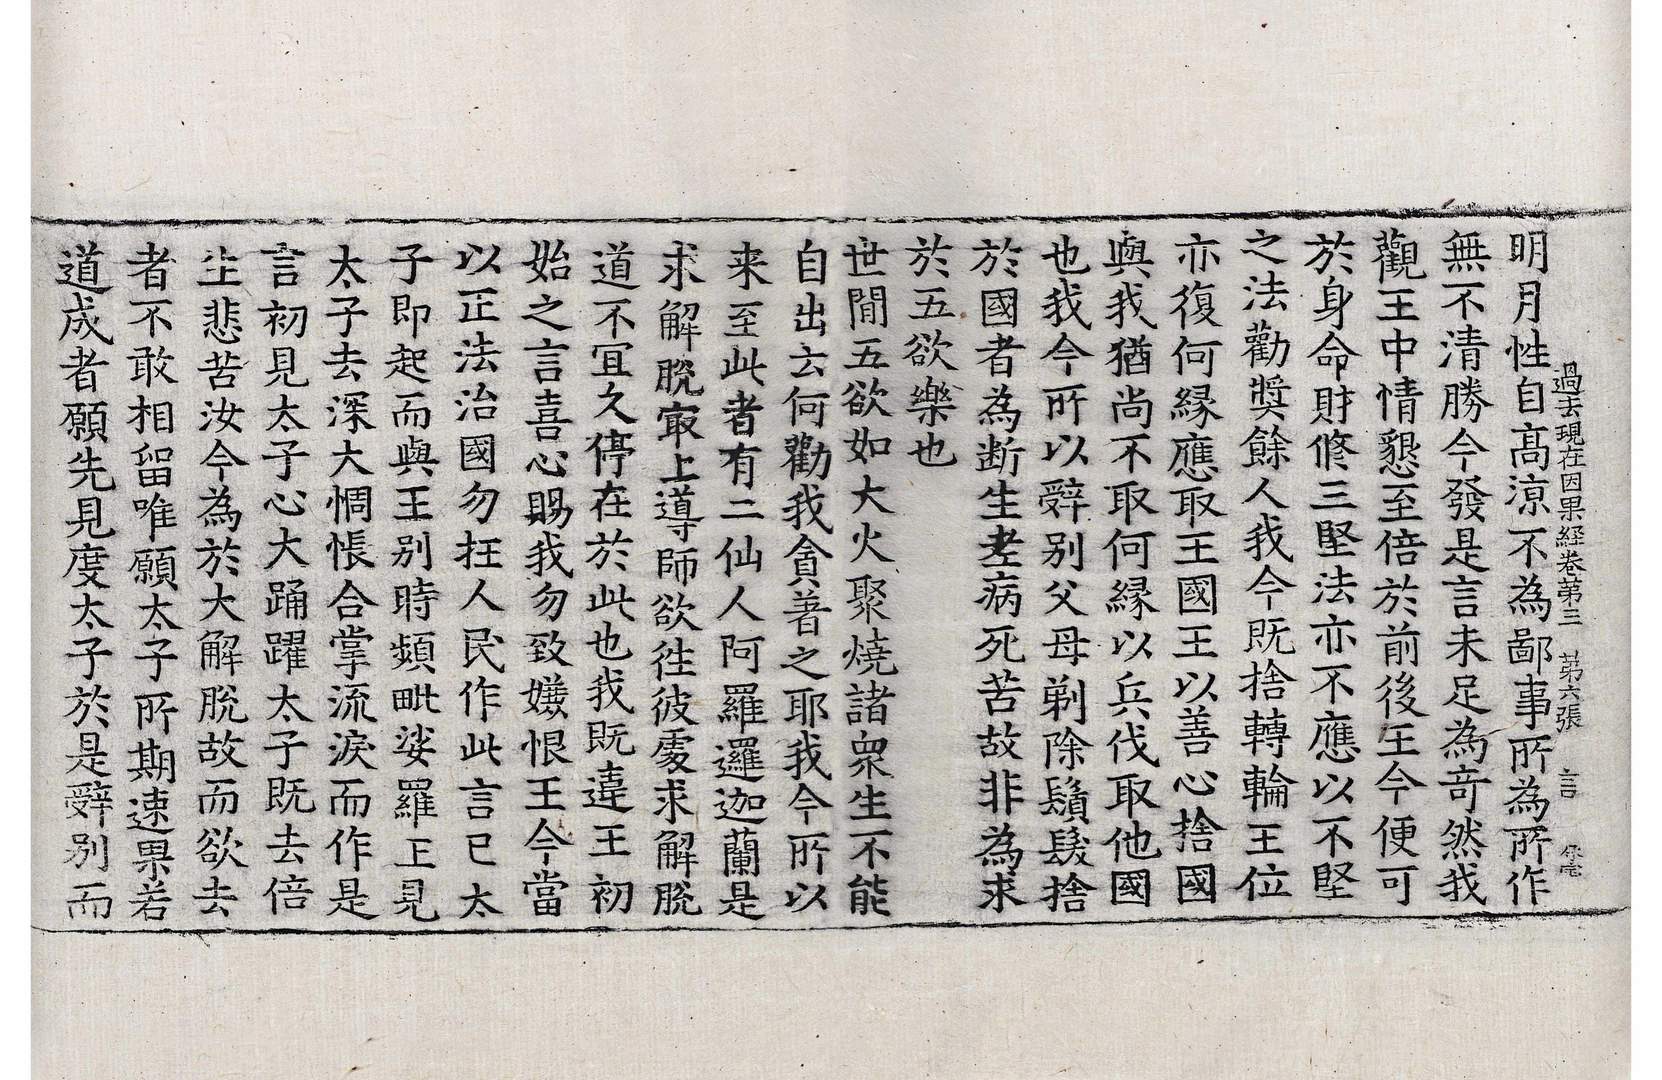 過去現在因果経卷第三　第六張　言
明月性自高涼不為鄙事所為所作
無不清勝今發是言未足為竒然我
觀王中情懇至倍於前後王今便可
於身命財修三堅法亦不應以不堅
之法勸奬餘人我今既捨轉輪王位
亦復何縁應取王國王以善心捨國
與我猶尚不取何縁以兵伐取他國
也我今所以辝別父母剃除鬚髮捨
於國者為断生老病死苦故非為求
於五欲樂也
世間五欲如大火聚燒諸衆生不能
自出云何勸我貪著之耶我今所以
来至此者有二仙人阿羅邏迦蘭是
求解脫㝡上導師欲徃彼處求解脫
道不宜久停在於此也我既違王初
始之言喜心賜我勿致嫌恨王今當
以正法治國勿抂人民作此言已太
子即起而與王别時頻毗娑羅王見
太子去深大惆悵合掌流淚而作是
言初見太子心大踊躍太子既去倍
生悲苦汝今為於大解脫故而欲去
者不敢相留唯願太子所期速果若
道成者願先見度太子於是辝別而